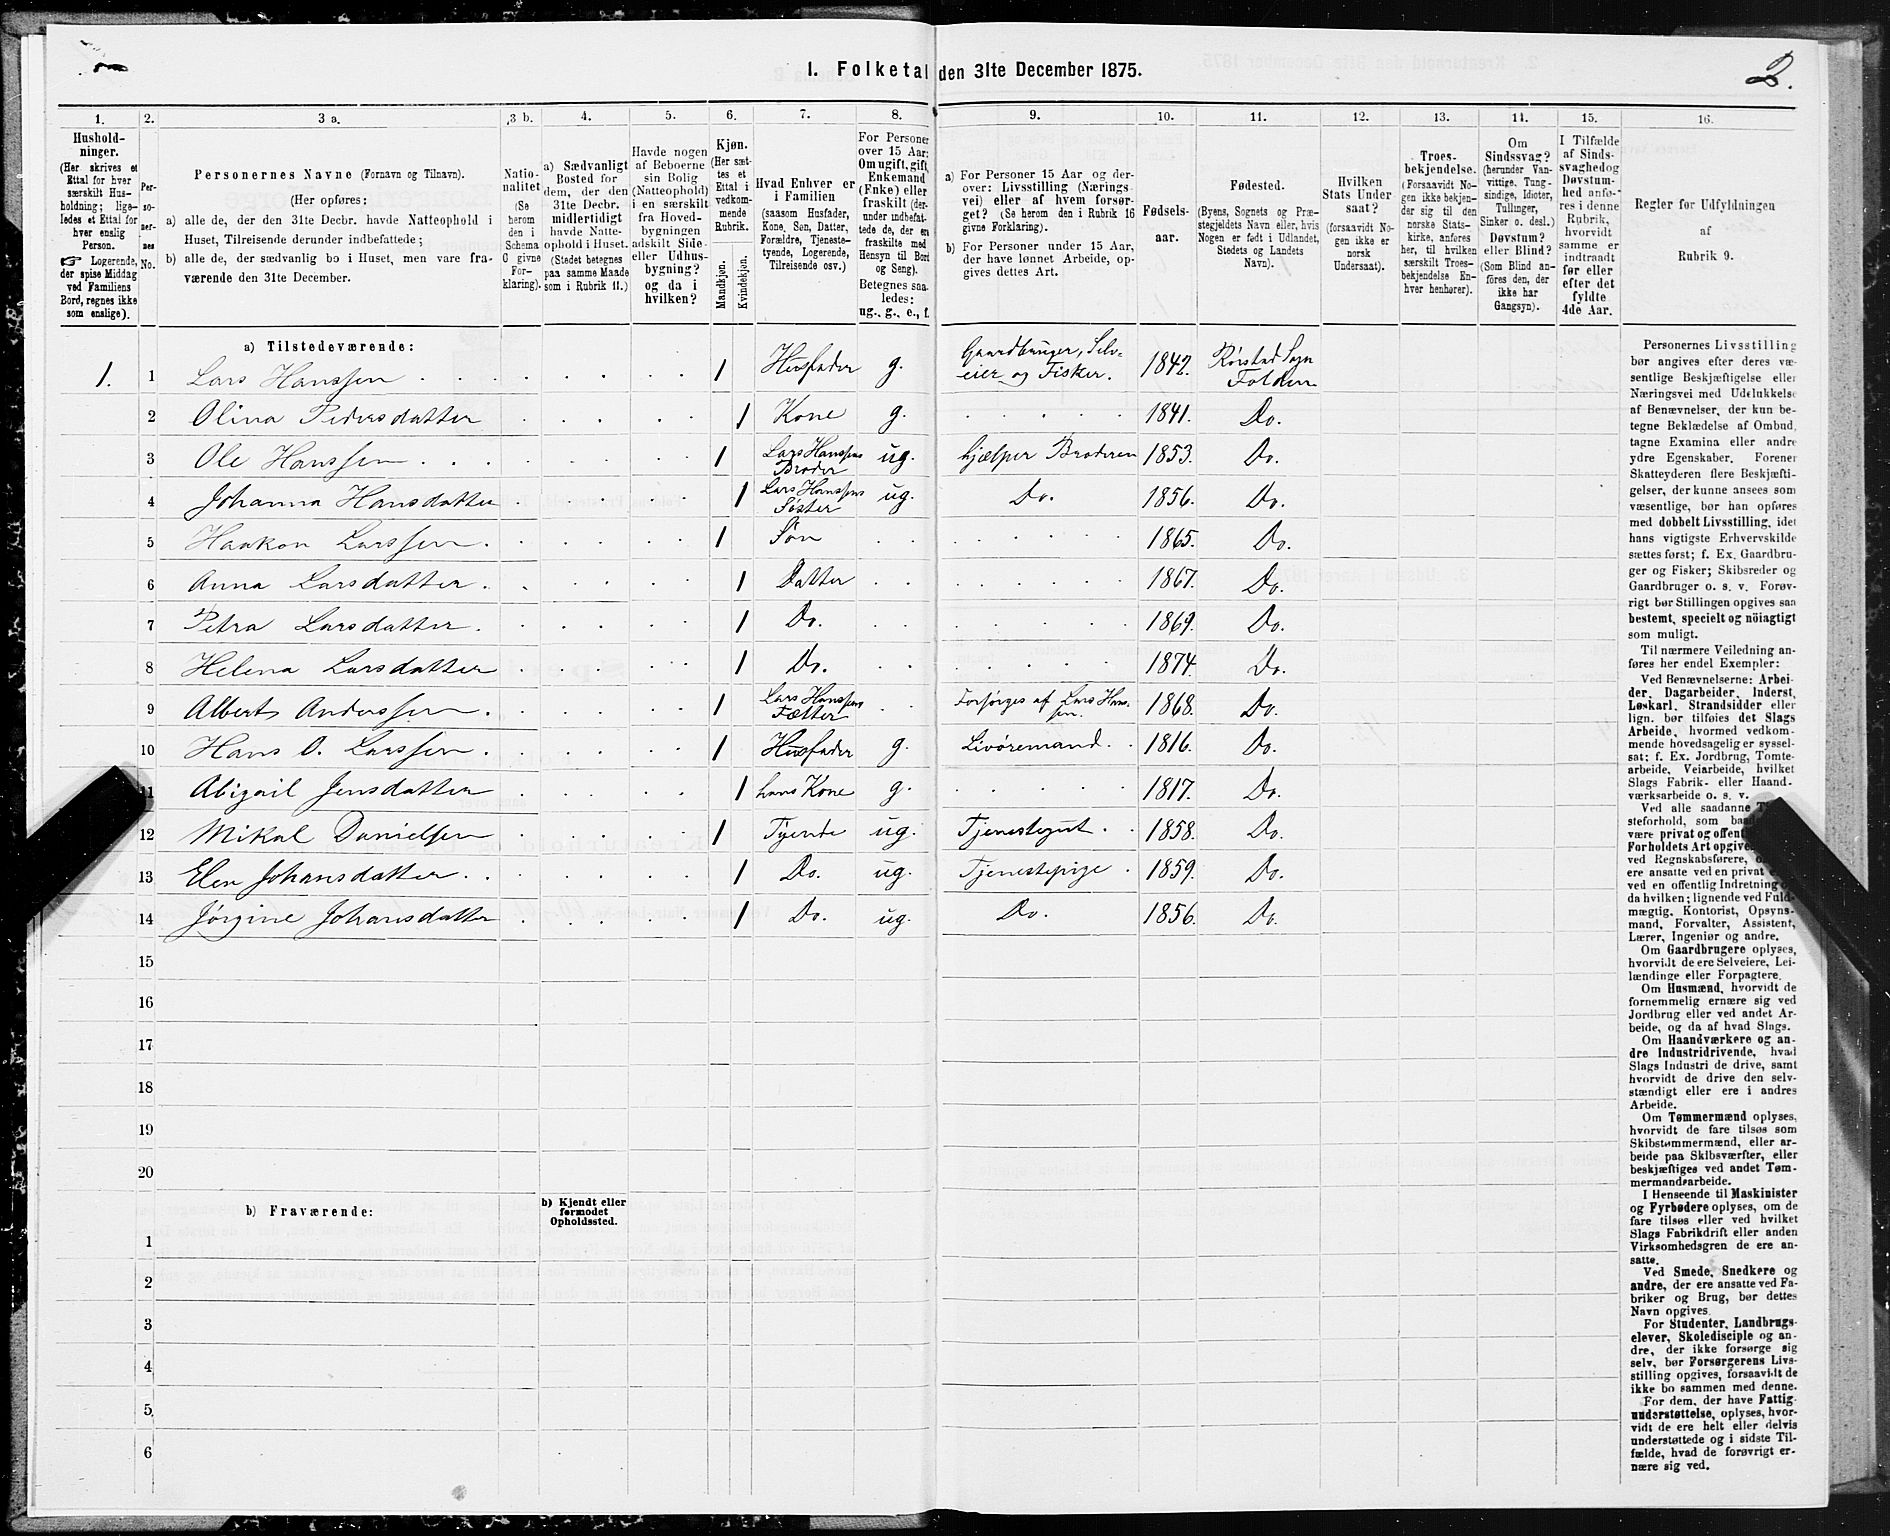 I. Folketal den 31te December 1875.
2.
1. 2. 3 a. 3 b. 4. 5. 6. 7. 8. 9. 10. 11. 12. 13. 14. 15. 16.
Hushold-
ninger.
(Her skrives et
Ettal for hver
særskilt Hus-
holdning; lige-
ledes et Ettal for
hver enslig
Person.
☞ Logerende,
der spise Middag
ved Familiens
Bord, regnes ikke
som enslige).
Per-
so-
ner-
nes
No.
Personernes Navne (Fornavn og Tilnavn).
(Her opføres:
a) alle de, der den 31te Decbr. havde Natteophold i
Huset, Tilreisende derunder indbefattede;
b) alle de, der sædvanlig bo i Huset, men vare fra-
værende den 31te December.
Natio-
nalitet
(Se
herom
den i
Schema
C givne
For-
klaring).
a) Sædvanligt
Bosted for
dem, der den
31te Decbr.
midlertidigt
havde Natte-
ophold i Huset.
(Stedet betegnes
paa samme Maade
som i Rubrik 11.)
Havde nogen
af Beboerne
sin Bolig
(Natteophold)
i en særskilt
fra Hoved-
bygningen
adskilt Side-
eller Udhus-
bygning?
og da i
hvilken?
Kjøn.
(Her sæt-
tes et
Ettal i
vedkom-
mende
Rubrik.
Mandkjøn.
Kvindekjøn.
Hvad Enhver er
i Familien
(saasom Husfader,
Kone, Søn, Datter,
Forældre, Tjeneste-
tyende, Logerende,
Tilreisende osv.)
For Personer
over 15 Aar:
Om ugift, gift,
Enkemand
(Enke) eller
fraskilt (der-
under indbefat-
tede de, der ere
fraskilte med
Hensyn til Bord
og Seng).
Betegnes saa-
ledes:
ug., g., e., f.
a) For Personer 15 Aar og der-
over: Livsstilling (Nærings-
vei) eller af hvem forsør-
get? (Se herom den i Rubrik 16
givne Forklaring).
b) For Personer under 15 Aar,
der have lønnet Arbeide, op-
gives dettes Art.
Fødsels-
aar.
Fødested.
(Byens, Sognets og Præ-
stegjeldets Navn eller, hvis
Nogen er født i Udlandet,
Stedets og Landets
Navn).
Hvilken
Stats Under-
saat?
(forsaavidt No-
gen ikke er
norsk
Undersaat).
Troes-
bekjendelse.
(Forsaavidt No-
gen ikke bekjen-
der sig til den
norske Stats-
kirke, anføres
her, til hvilken
særskilt Troes-
bekjendelse En-
hver henhører).
Om
Sindssvag?
(herunder Van-
vittige, Tung-
sindige, Idioter,
Tullinger,
Sinker o. desl.)
Døvstum?
eller Blind?
(Som Blind an-
føres den, der
ikke har
Gangsyn).
I Tilfælde
af Sinds-
svaghed og
Døvstum-
hed anfø-
res i denne
Rubrik,
hvorvidt
samme er
indtraadt
før eller
efter det
fyldte
4de Aar.
Regler for Udfyldningen
af
Rubrik 9.
a) Tilstedeværende:
1. 1 Lars Hanssen 1 Husfader g. Gaardbruger, Selv-
eier og Fisker. 1842. Rørstad Sogn
Folden
2 Olina Pedersdatter 1 Kone g. 1841. Do.
3 Ole Hanssen 1 Lars Hanssens
Broder ug. hjælper Broderen 1853. Do.
4 Johanna Hansdatter 1 Lars Hanssens
Søster ug. Do. 1856. Do.
5 Haakon Larssen 1 Søn 1865. Do.
6 Anna Larsdatter 1 Datter 1867. Do.
7 Petra Larsdatter 1 Do. 1869. Do.
8 Helena Larsdatter 1 Do. 1874. Do.
9 Albert Anderssen 1 Lars Hanssens
Fætter Forsørges af Lars Hans-
sen. 1868. Do.
10 Hans O. Larssen 1 Husfader g. Livøremand. 1816. Do.
11 Abigail Jensdatter 1 hans Kone g. 1817. Do.
12 Mikal Danielsen 1 Tyende ug. Tjenestegut. 1858. Do.
13 Elen Johansdatter 1 Do. ug. Tjenestepige 1859. Do.
14 Jørgine Johansdatter 1 Do. ug. Do. 1856. Do.
15
16
17
18
19
20
b) Fraværende:
b) Kjendt eller
formodet
Opholdssted.
1
2
3
4
5
6
Personernes Livsstilling
bør angives efter deres væ-
sentlige Beskjæftigelse eller
Næringsvei med Udelukkelse
af Benævnelser, der kun be-
tegne Beklædelse af Ombud,
tagne Examina eller andre
ydre Egenskaber. Forener
Skatteyderen flere Beskjæfti-
gelser, der kunne ansees som
væsentlige, bør han opføres
med dobbelt Livsstilling, idet
hans vigtigste Erhvervskilde
sættes først; f. Ex. Gaardbru-
ger og Fisker; Skibsreder og
Gaardbruger o. s. v. Forøv-
rigt bør Stillingen opgives saa
bestemt, specielt og nöiagtigt
som muligt.
Til nærmere Veiledning an-
føres her endel Exempler:
Ved Benævnelserne: Arbei-
der, Dagarbeider, Inderst,
Løskarl, Strandsidder eller
lign. bør tilføies det Slags
Arbeide, hvormed vedkom-
mende hovedsagelig er syssel-
sat; f. Ex. Jordbrug, Tomte-
arbeide, Veiarbeide, hvilket
Slags Fabrik- eller Haand-
værksarbeide o. s. v.
Ved alle saadanne
steforhold, som
være privat og
Forholdets Art
ved Regnskabsførere,
ere ansatte ved en privat
ved en offentlig Indretning
da hvilken; lignende ved Fuld-
mægtig, Kontorist, Opsyns-
mand, Forvalter, Assistent,
Lærer, Ingeniør og andre.
Om Gaardbrugere oplyses,
hvorvidt de ere Selveiere, Lei-
lændinge eller Forpagtere.
Om Husmænd, hvorvidt de
fornemmelig ernære sig ved
Jordbrug eller ved andet Ar-
beide, og da af hvad Slags.
Om Haandværkere og an-
dre Industridrivende, hvad
Slags Industri de drive, samt
hvorvidt de drive den selv-
stændigt eller ere i andres
Arbeide.
Om Tømmermænd oplyses,
hvorvidt de fare tilsøs som
Skibstømmermænd, eller ar-
beide paa Skibsværfter, eller
beskjæftiges ved andet Tøm-
mermandsarbeide.
I Henseende til Maskinister
og Fyrbødere oplyses, om de
fare tilsøs eller ved hvilket
Slags Fabrikdrift eller anden
Virksomhedsgren de ere an-
satte.
Ved Smede, Snedkere og
andre, der ere ansatte ved Fa-
briker og Brug, bør dettes
Navn opgives.
For Studenter, Landbrugs-
elever, Skoledisciple og an-
dre, der ikke forsørge sig
selv, bør Forsørgerens Livs-
stilling opgives, forsaavidt de
ikke bo sammen med denne.
For dem, der have Fattig-
understøttelse, oplyses, hvor-
vidt de ere helt eller delvis
understøttede og i sidste Til-
fælde, hvad de forøvrigt er-
nære sig ved.